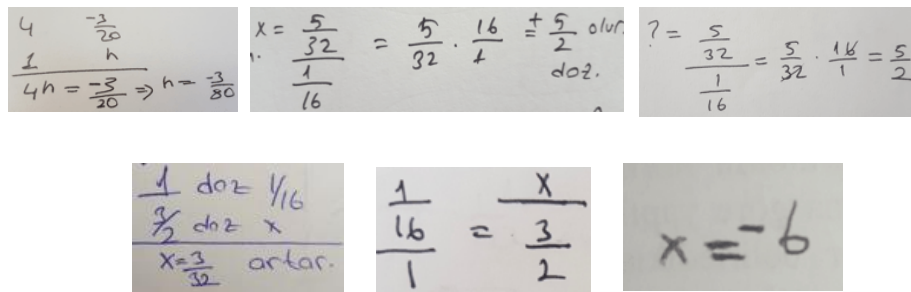 4 -3/20
1 n
4n = -3/20 => n = -3/80
x = 5/32 / 1/16 = 5/32 . 16/1 = + 5/2 olur.
doz.
? = 5/32 / 1/16 = 5/32 . 16/1 = 5/2
1 doz 1/16
3/2 doz x
x = 3/32 artar.
1/16 / 1 = x / 3/2
x = -6